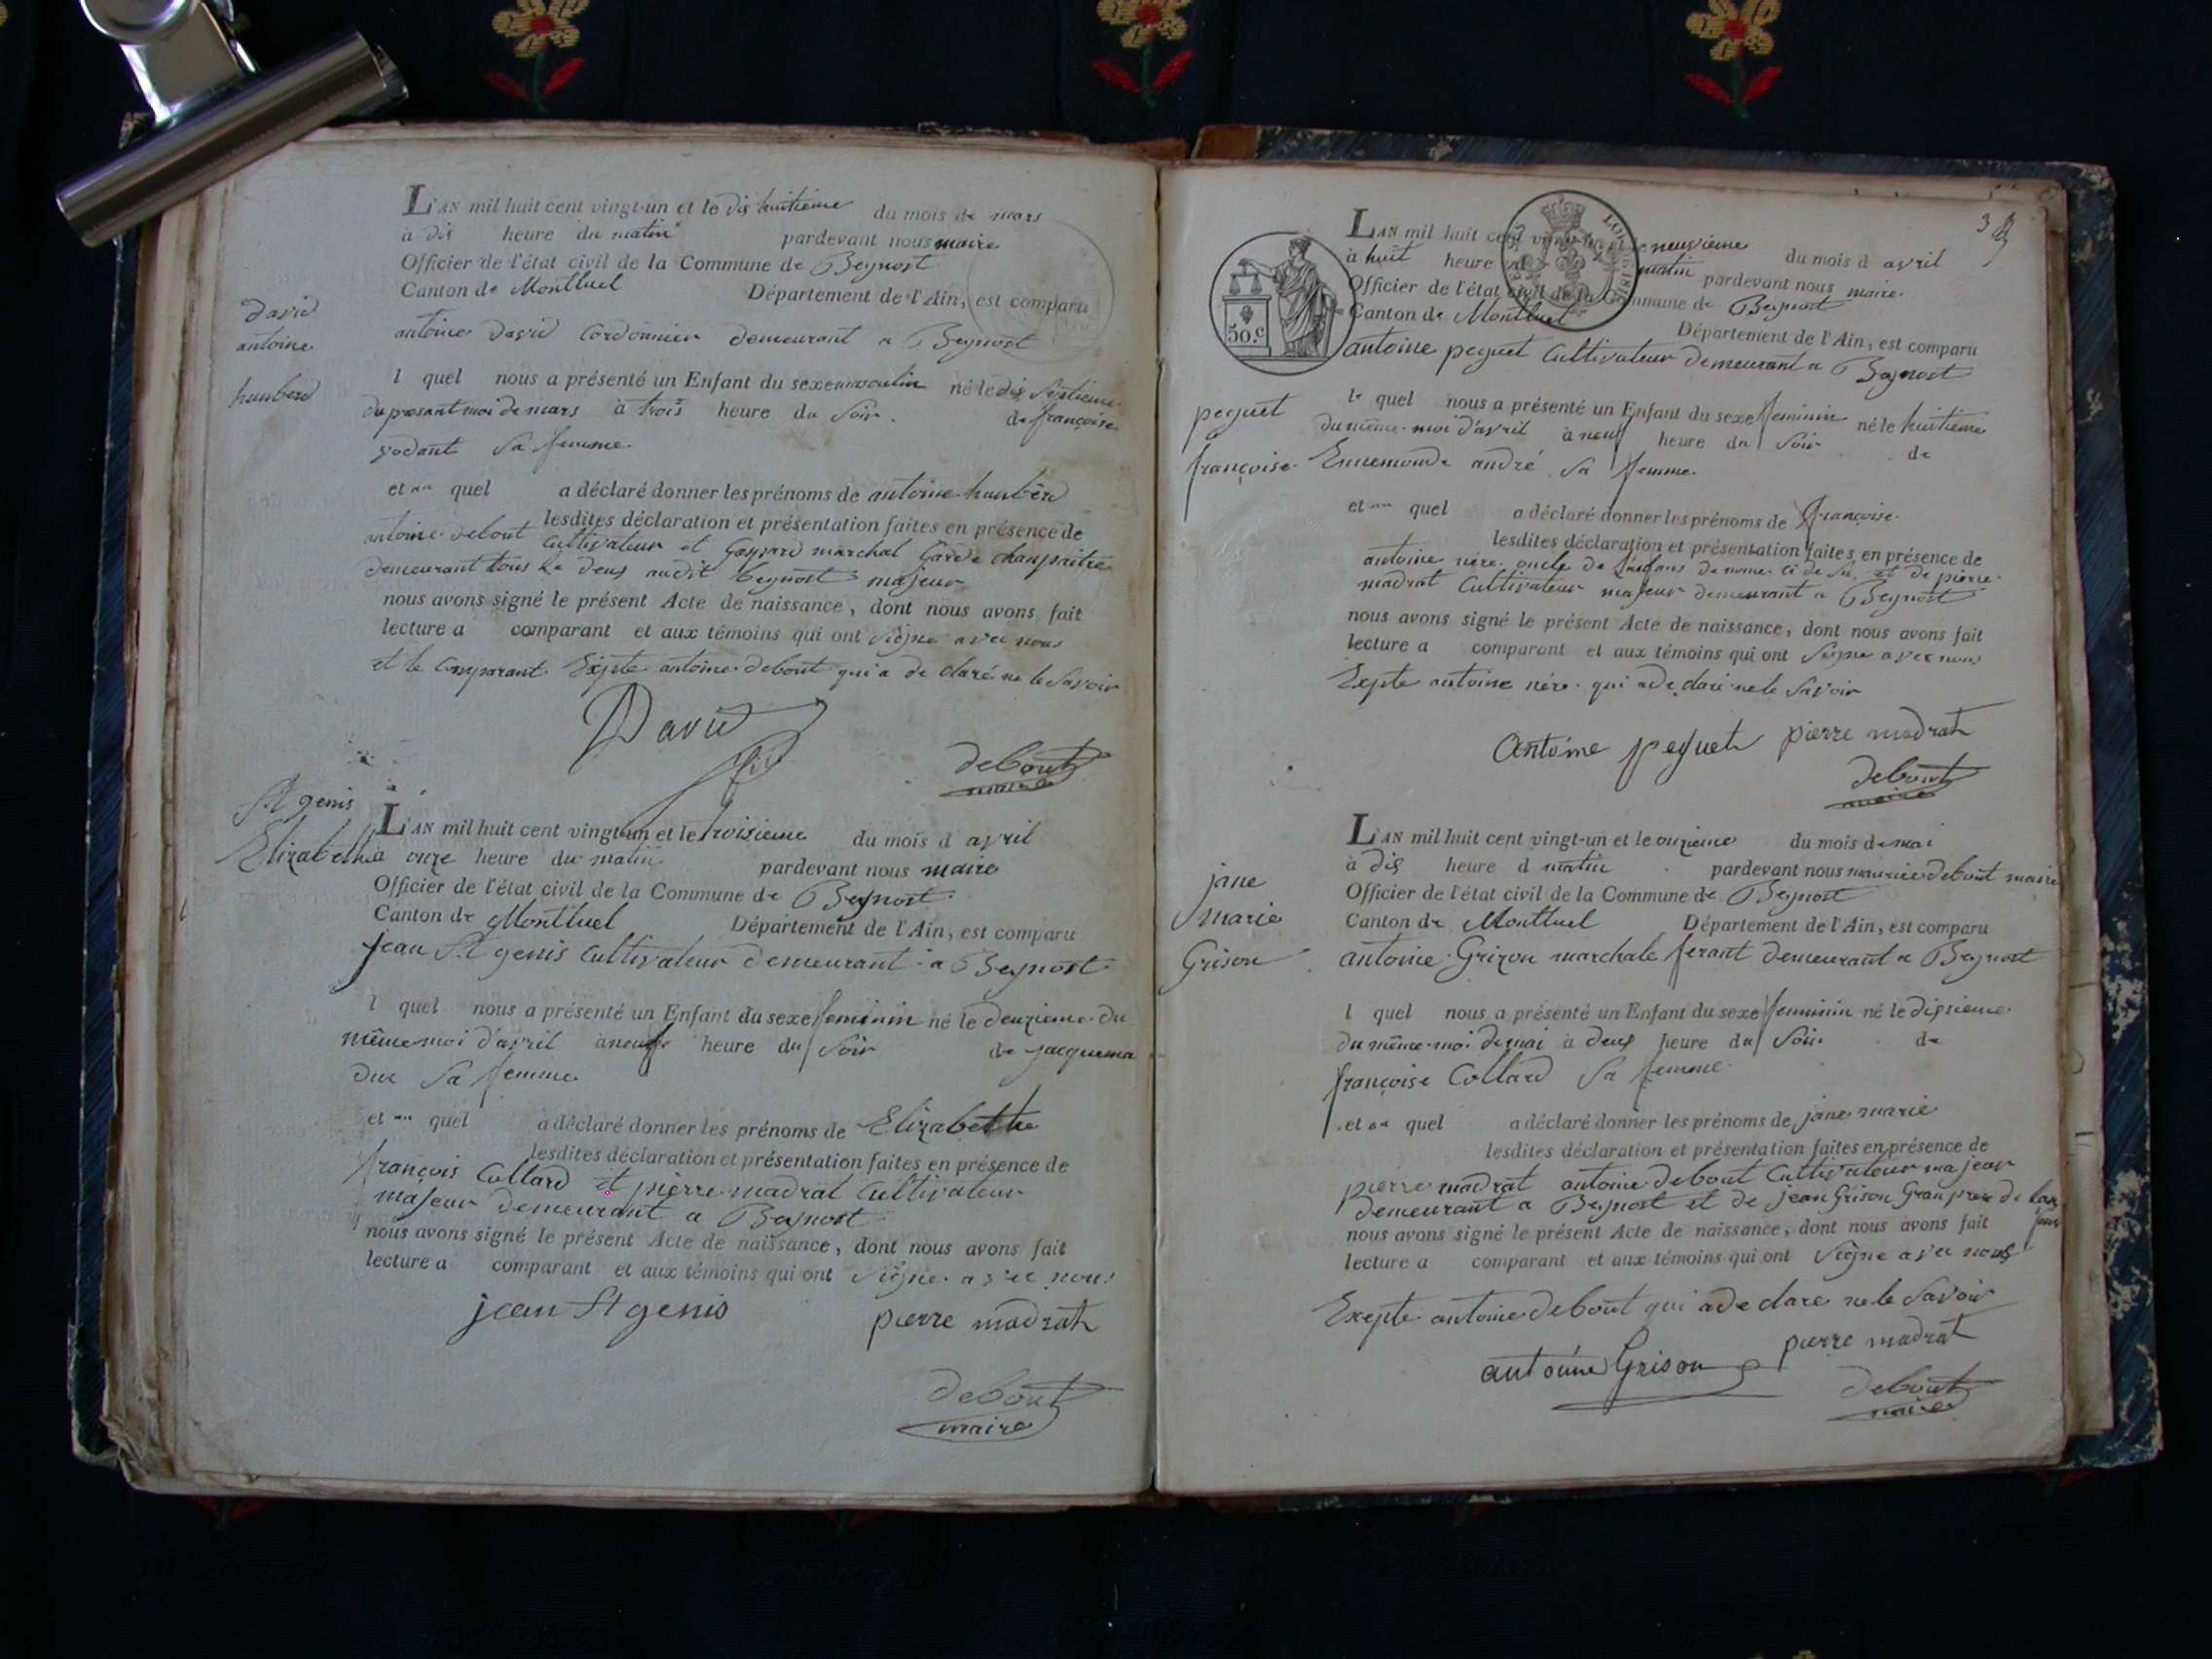 L'AN mil huit cent vingt-un et le dis huitieme du mois de mars
à dis heure du matin pardevant nous maire
Officier de l'état civil de la Commune de Beynost
Canton de Montluel Département de l'Ain, est comparu
david
antoine
humberd
antoine david Cordonnier demeurant a Beynost
l quel nous a présenté un Enfant du sexe masculin né le dis septieme
du presant moi de mars à trois heure du soir. de françoise
godant sa femme.
et au quel a déclaré donner les prénoms de antoine humberd
lesdites déclaration et présentation faites en présence de
antoine debout cultivateur et Gaspard marchal Garde champaitre
demeurant tous le deus audit beynost majeur
nous avons signé le présent Acte de naissance, dont nous avons fait
lecture a comparant et aux témoins qui ont signe avec nous
et le Comparant Exepte antoine debout qui a de claré ne le savoir
David
debout
maire
St genis
Elizabeth
L'AN mil huit cent vingt-un et le troisieme du mois d avril
à onze heure du matin pardevant nous maire
Officier de l'état civil de la Commune de Beynost
Canton de Montluel Département de l'Ain, est comparu
jean St genis cultivateur demeurant a Beynost
l quel nous a présenté un Enfant du sexe feminin né le deuzieme du
même moi d'avril à neuf heure du soir de jacquema
duc sa femme
et au quel a déclaré donner les prénoms de Elizabethe
lesdites déclaration et présentation faites en présence de
françois Collard et pierre madrat cultivateur
majeur demeurant a Beynost
nous avons signé le présent Acte de naissance, dont nous avons fait
lecture a comparant et aux témoins qui ont signe avec nous
jean St genis pierre madrat
debout
maire
3
L'AN mil huit cent vingt-un et le neuvieme du mois d avril
à huit heure d matin pardevant nous maire
Officier de l'état civil de la Commune de Beynost
Canton de Montluel Département de l'Ain, est comparu
50.c
antoine peguet cultivateur demeurant a Beynost
peguet
françoise
le quel nous a présenté un Enfant du sexe feminin né le huitieme
du même moi d'avril à neuf heure du soir de
Ennemonde andré sa femme.
et au quel a déclaré donner les prénoms de françoise
lesdites déclaration et présentation faites en présence de
antoine nére oncle de de nome ci de su et de pierre
madrat cultivateur majeur demeurant a Beynost
nous avons signé le présent Acte de naissance, dont nous avons fait
lecture a comparant et aux témoins qui ont signe avec nous
Exepte antoine nére qui a de clari ne le savoir
antoine peguet pierre madrat
debout
maire
jane
marie
Grison
L'AN mil huit cent vingt-un et le onzieme du mois de mai
à dis heure d matin pardevant nous maurice debout maire
Officier de l'état civil de la Commune de Beynost
Canton de Montluel Département de l'Ain, est comparu
antoine Grizon marchale ferant demeurant a Beynost
l quel nous a présenté un Enfant du sexe feminin né le dixsieme
du même moi de mai à deus heure du soir de
françoise Collard sa femme
et au quel a déclaré donner les prénoms de jane marie
lesdites déclaration et présentation faites en présence de
pierre madrat antoine debout cultivateur majeur
demeurant a Beynost et de jean Grison Gran pere de lan
fans
nous avons signé le présent Acte de naissance, dont nous avons fait
lecture a comparant et aux témoins qui ont signe avec nous
Exepte antoine debout qui a de clare ne le savoir
antoine Grison pierre madrat
debout
maire